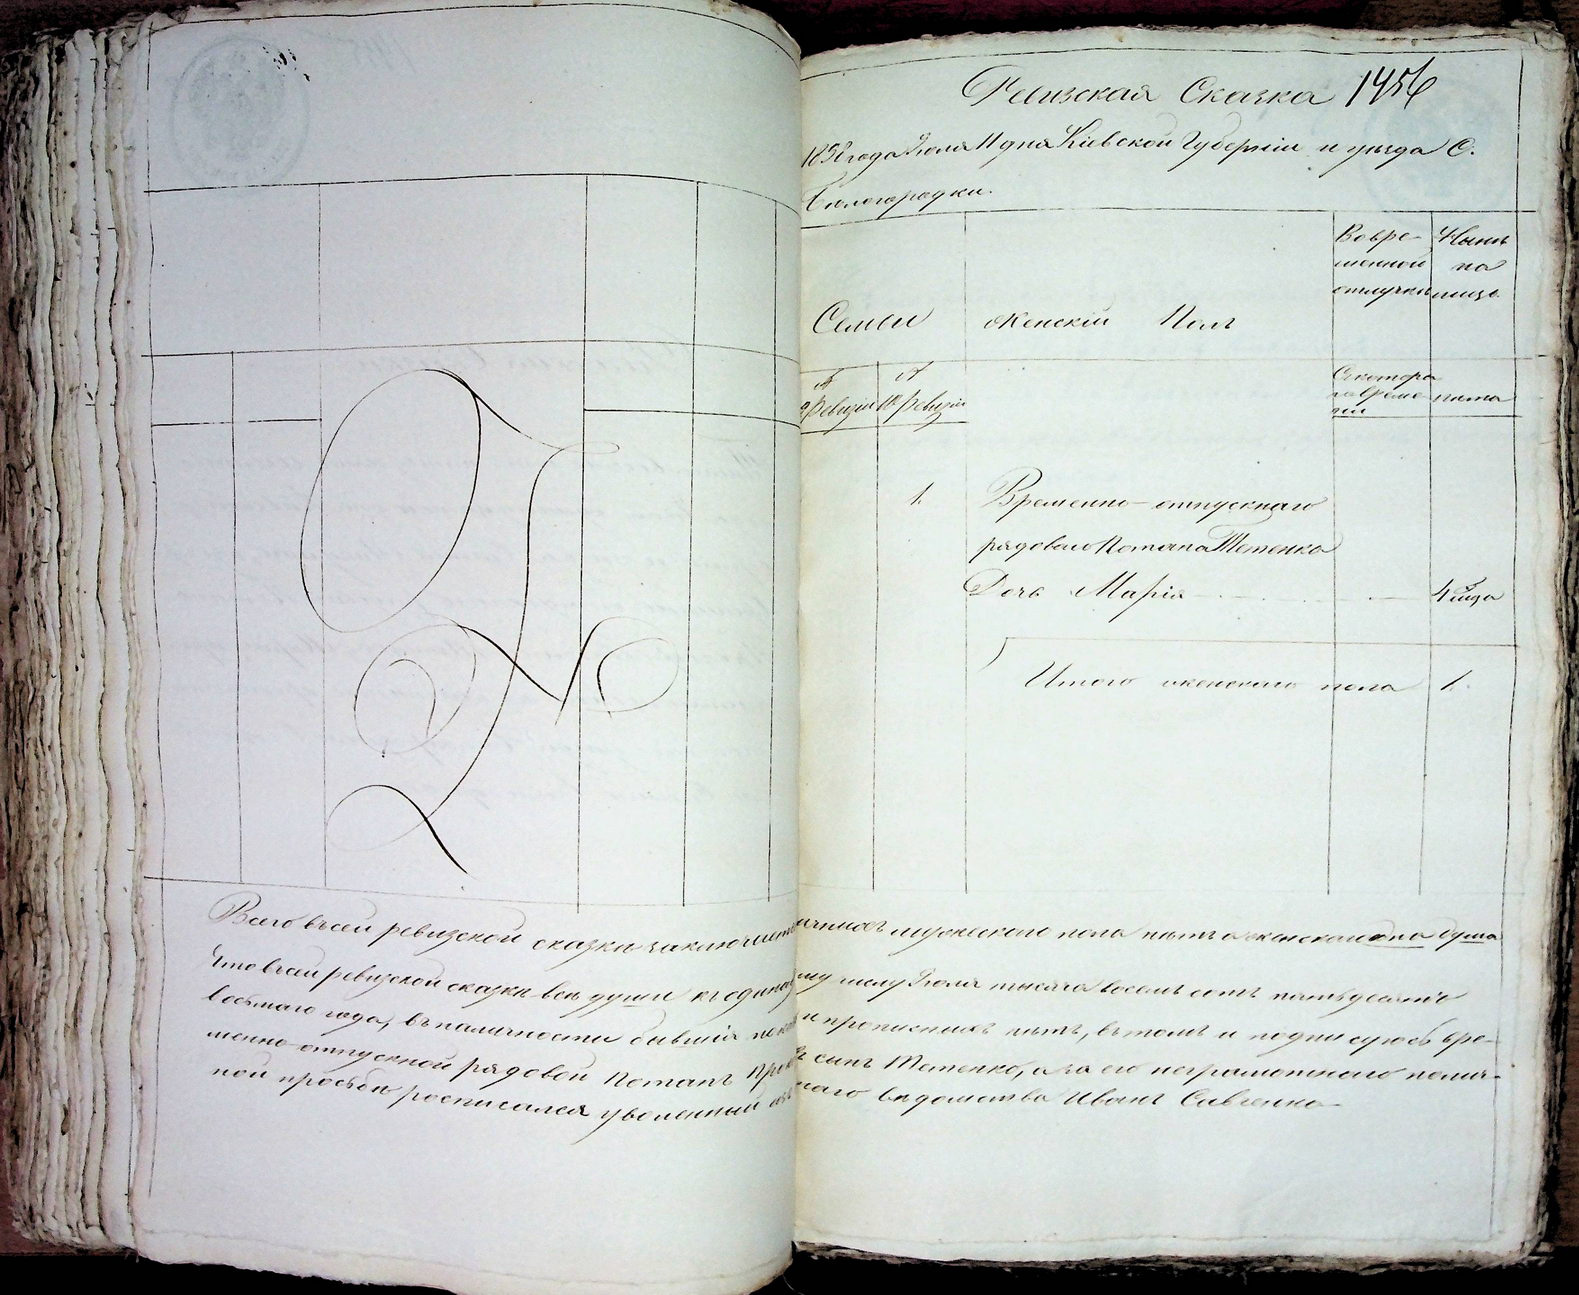 Ревизская Сказка 1456
1858 года Июля 11 дня Кіевской Губерніи и уезда С.
Белогородки.
Вовре-
менной
отлучки
Ныне
на
лицо
Семьи
Женскій Полъ
№
Ревизіи
№
10 Ревизіи
Съ котора
го време
ни
лета
1. Временно-отпускнаго
рядоваго Потапа Тетенка
Дочь Марія 4 года
Итого женскаго пола 1.
Всего въ сей ревизской сказки заключаетъ мужескаго пола нетъ а женскаго одна душа
Что въ сей ревизской сказке все души къ одинад му числу Июля тысяча восемь сотъ пятьдесятъ
восьмаго года, въ наличности бывшія пока и прописныхъ нетъ, въ томъ и подписуюсь вре-
менно-отпускной рядовой Потапъ сынъ Тетенко, а за его неграмотнаго по лич-
ной просьбе росписался уволенный изъ наго ведомства Иванъ Савченко